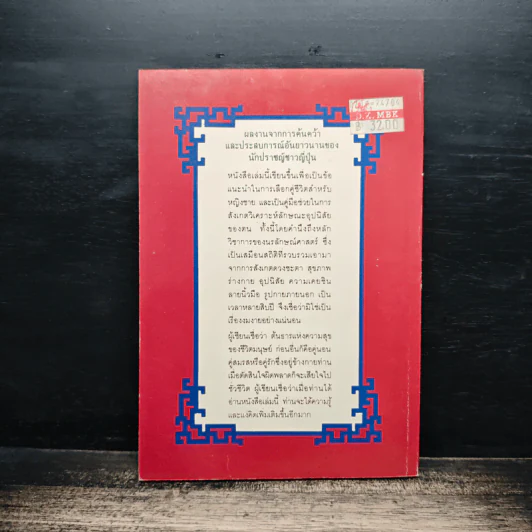 MBK
3200
ผลงานจากการค้นคว้า
และประสบการณ์อันยาวนานของ
นักปราชญ์ชาวญี่ปุ่น
หนังสือเล่มนี้เขียนขึ้นเพื่อเป็นข้อ
แนะนำในการเลือกคู่ชีวิตสำหรับ
หญิงชาย และเป็นคู่มือช่วยในการ
สังเกตวิเคราะห์ลักษณะอุปนิสัย
ของตน ทั้งนี้โดยคำนึงถึงหลัก
วิชาการของนรลักษณ์ศาสตร์ ซึ่ง
เป็นเสมือนสถิติที่รวบรวมเอามา
จากการสังเกตดวงชะตา สุขภาพ
ร่างกาย อุปนิสัย ความเคยชิน
ลายนิ้วมือ รูปกายภายนอก เป็น
เวลาหลายสิบปี จึงเชื่อว่ามิใช่เป็น
เรื่องงมงายอย่างแน่นอน
ผู้เขียนเชื่อว่า ต้นธารแห่งความสุข
ของชีวิตมนุษย์ ก่อนอื่นก็คือคู่นอน
คู่สมรสหรือคู่รักซึ่งอยู่ข้างกายท่าน
เมื่อตัดสินใจผิดพลาดก็จะเสียใจไป
ชั่วชีวิต ผู้เขียนเชื่อว่าเมื่อท่านได้
อ่านหนังสือเล่มนี้ ท่านจะได้ความรู้
และแง่คิดเพิ่มเติมขึ้นอีกมาก